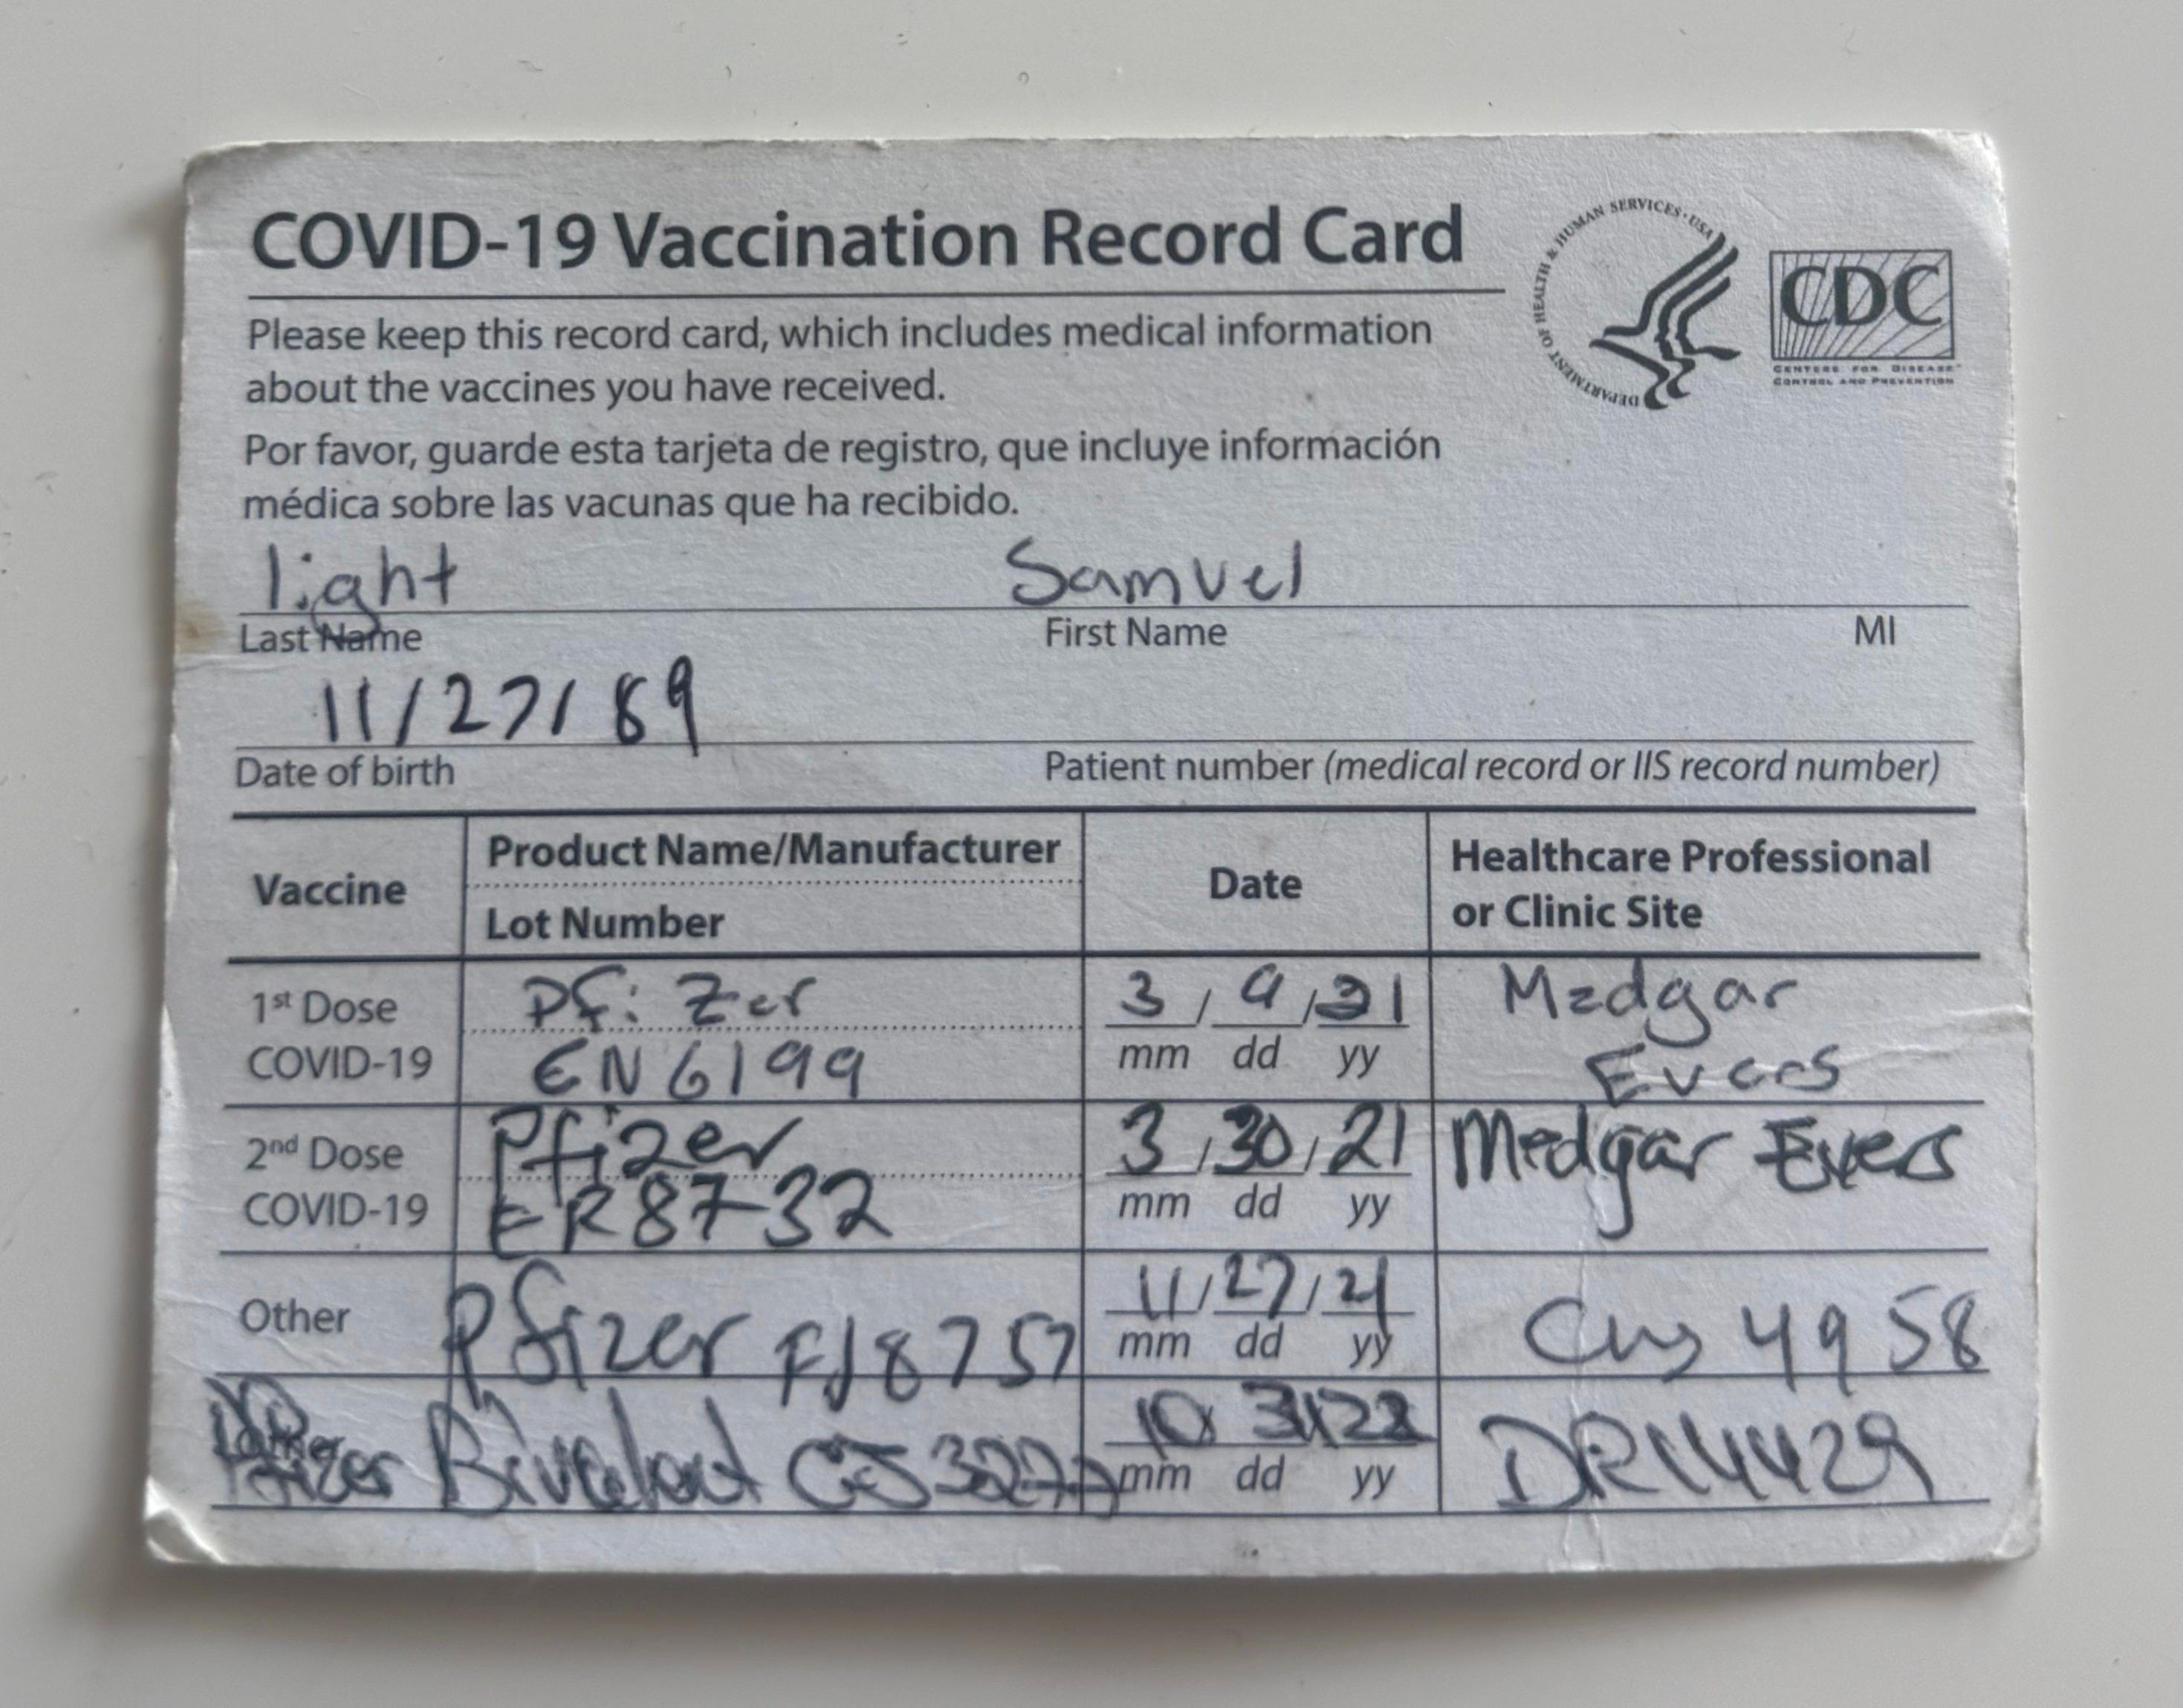 COVID-19 Vaccination Record Card
DEPARTMENT OF HEALTH & HUMAN SERVICES · USA
CDC
CENTERS FOR DISEASE
CONTROL AND PREVENTION
Please keep this record card, which includes medical information
about the vaccines you have received.
Por favor, guarde esta tarjeta de registro, que incluye información
médica sobre las vacunas que ha recibido.
light Samuel
Last Name First Name MI
11/27/89
Date of birth Patient number (medical record or IIS record number)
Vaccine Product Name/Manufacturer Date Healthcare Professional
Lot Number or Clinic Site
1st Dose Pfizer 3/9/21 Medgar
COVID-19 EN6199 mm dd yy Evers
2nd Dose Pfizer 3/30/21 Medgar Evers
COVID-19 ER8732 mm dd yy
Other Pfizer FJ8757 11/27/21 Cvs 4958
mm dd yy
Pfizer Bivalent 10 31 22 DR14429
mm dd yy